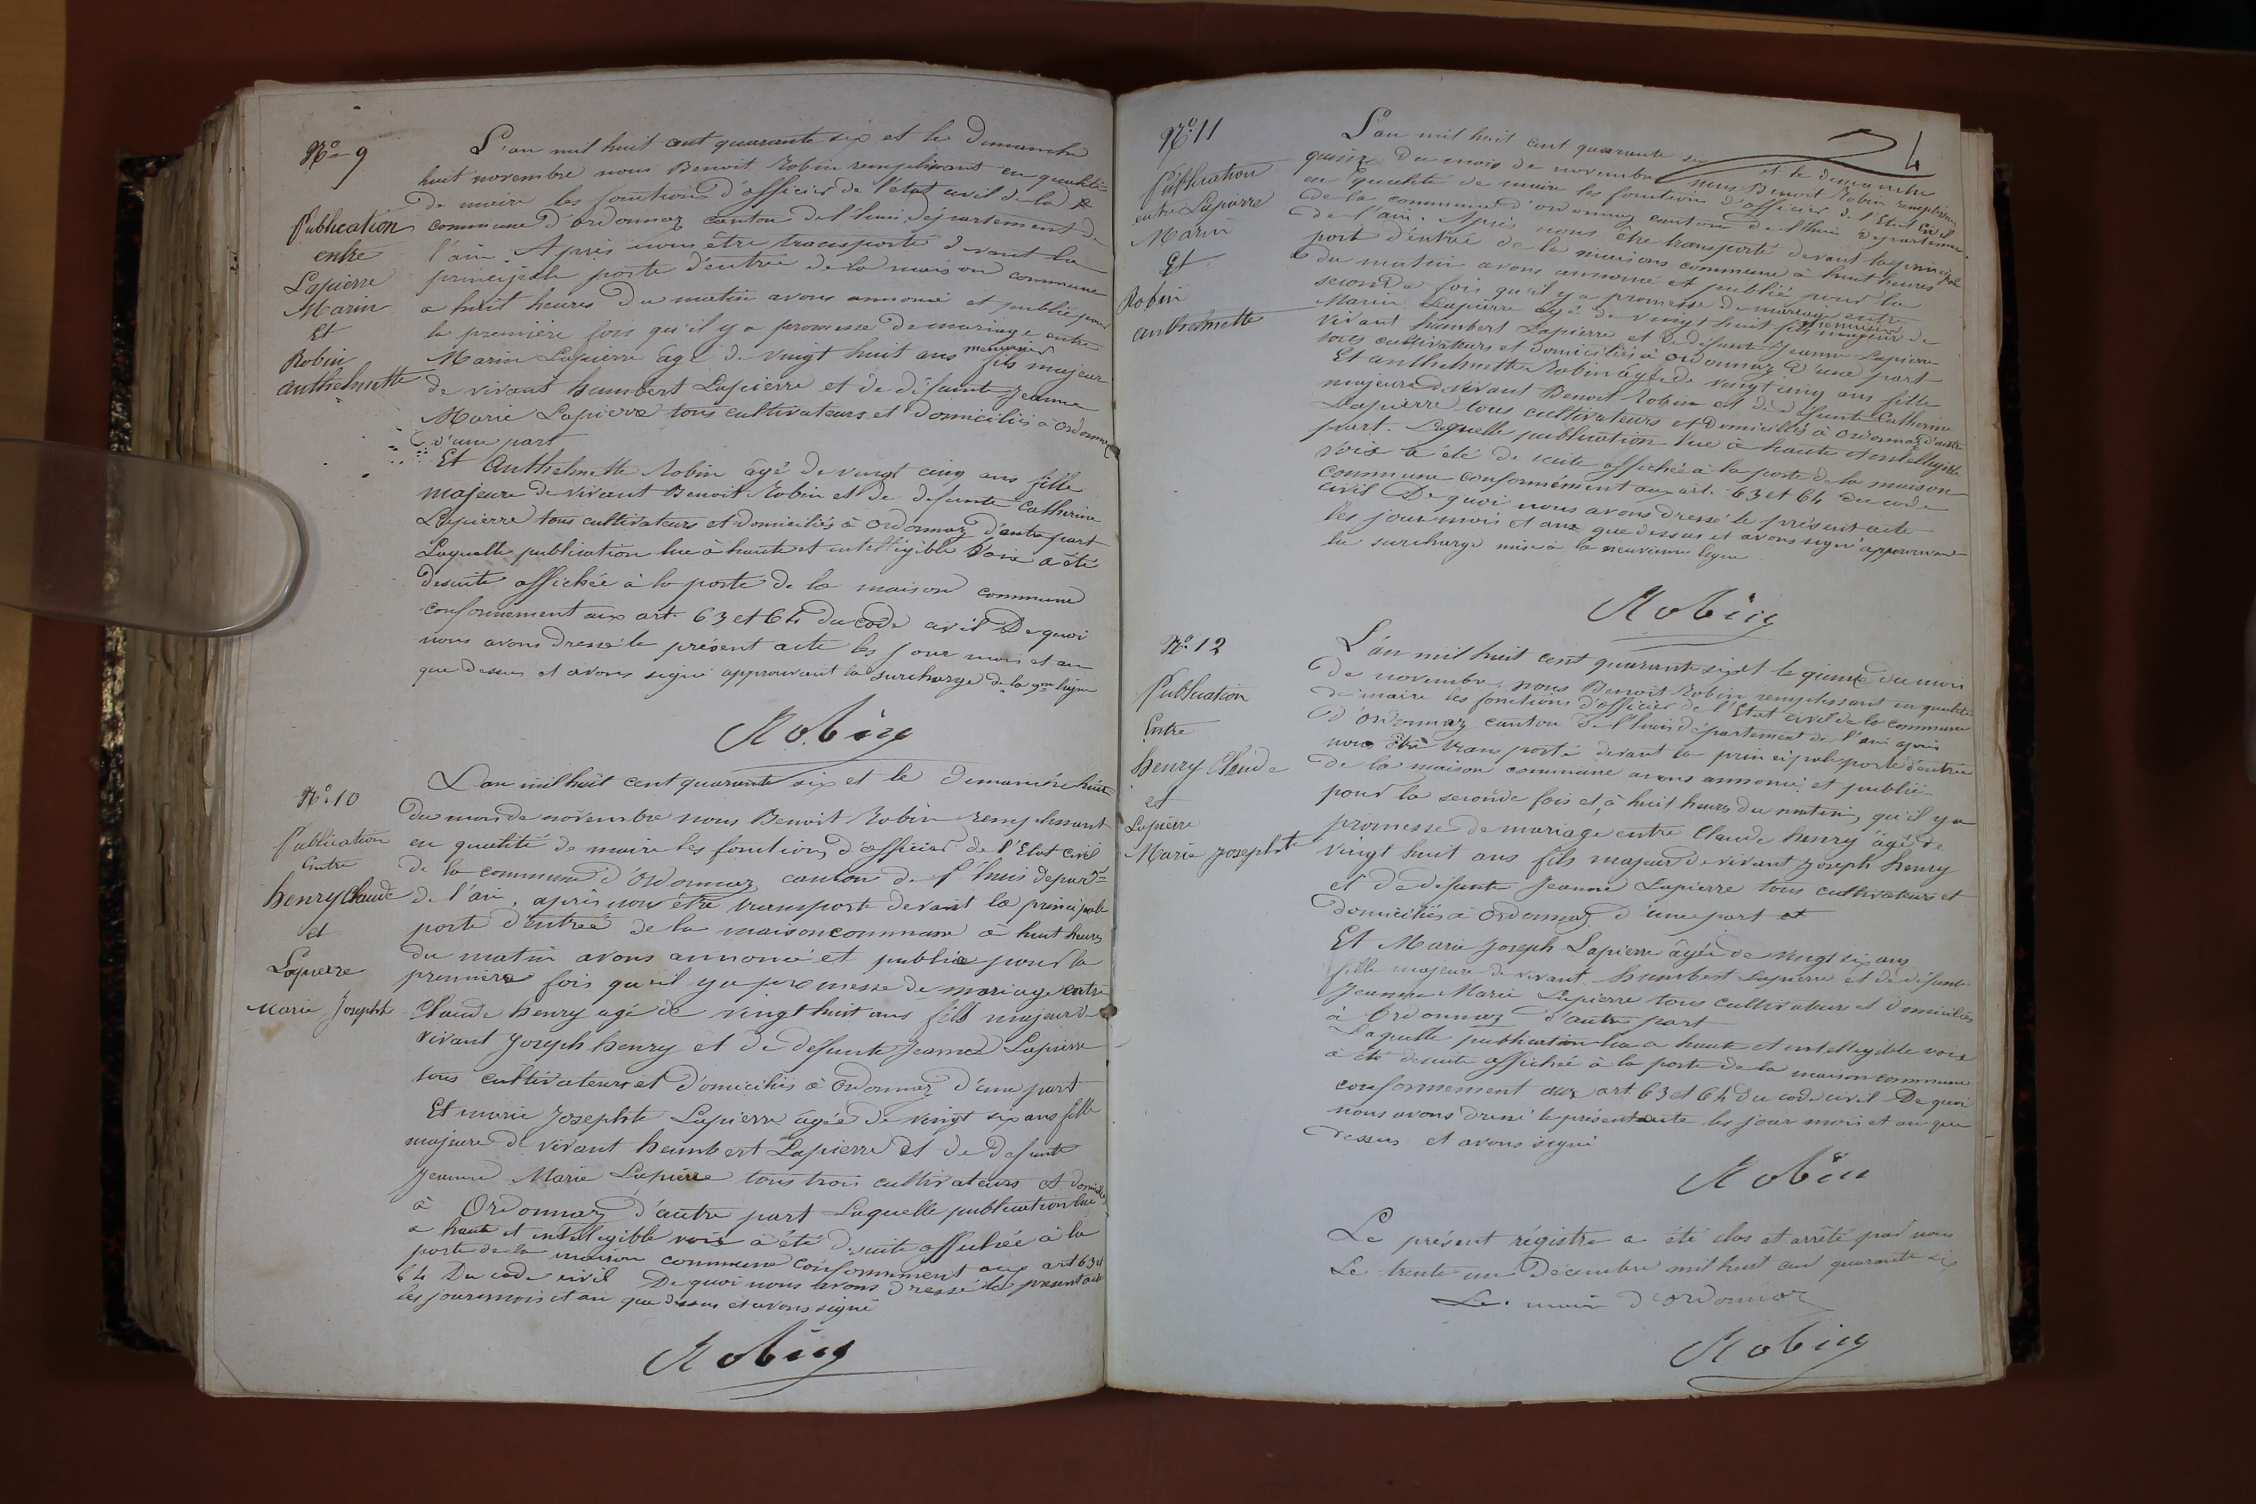 N° 9
Publication
entre
Lapierre
Marin
Et
Robin
anthelmette
L'an mil huit cent quarante six et le dimanche
huit novembre nous Benoit Robin remplissant en qualité
de maire les fonctions d'officier de l'etat civil de la
commune d'ordonnaz canton de l'huis département de
l'ain. Après nous être transporté devant la
principale porte d'entrée de la maison commune
a huit heures du matin avons annoncé et publié pour
la première fois qu'il y a promesse de mariage entre
Marin Lapierre âgé de vingt huit ans menuisier fils majeur
de vivant humbert Lapierre et de défunte Jeanne
Marie Lapierre tous cultivateurs et domiciliés à Ordonnaz
d'une part
Et Anthelmette Robin âgé de vingt cinq ans fille
majeure de vivant Benoit Robin et de defunte Catherine
Lapierre tous cultivateurs et domiciliés à Ordonnaz d'autre part
Laquelle publication lue à haute et intelligible voix a été
desuite affichée à la porte de la maison commune
conformément aux art. 63 et 64 du code civil De quoi
nous avons dressé le présent acte les jour mois et an
que dessus et avons signé approuvant la surcharge de la 9me ligne
Robin
N° 10
Publication
Entre
henry Claude
et
Lapierre
Marie Josephte
L'an mil huit cent quarante six et le dimanche huit
du mois de novembre nous Benoit Robin remplissant
en qualité de maire les fonctions d'officier de l'Etat civil
de la commune d'Ordonnaz canton de l'huis depart
de l'ain, après nous être transporté devant la principale
porte d'entrée de la maison commune à huit heures
du matin avons annoncé et publié pour la
premiere fois qu'il y a promesse de mariage entre
Claude henry agé de vingt huit ans fils majeur de
vivant Joseph henry et de defunte Jeanne Lapierre
tous cultivateurs et domiciliés à Ordonnaz d'une part
Et marie Josephte Lapierre âgée de vingt six ans fille
majeure de vivant humbert Lapierre et de defunte
Jeanne Marie Lapierre tous trois cultivateurs et domiciliés
à Ordonnaz d'autre part Laquelle publication lue
a haute et intelligible voix a été desuite affichée à la
porte de la maison commune conformément aux art 63 et
64 Du code civil De quoi nous avons dressé le present acte
les jour mois et an que dessus et avons signé
Robin
24
N° 11
Publication
entre Lapierre
Marin
Et
Robin
anthelmette
L'an mil huit cent quarante six et le dimanche
quinze du mois de novembre nous Benoit Robin remplissant
en qualité de maire les fonctions d'officier de l'Etat civil
de la commune d'ordonnaz canton de l'huis departement
de l'ain. Après nous être transporté devant la principale
port d'entrée de la maison commune à huit heures
du matin avons annoncé et publié pour la
seconde fois qu'il y a promesse de mariage entre
Marin Lapierre âgé de vingt huit menuisier fils majeur de
vivant humbert Lapierre et de defunte Jeanne Lapierre
tous cultivateurs et domiciliés à Ordonnaz d'une part
Et anthelmette Robin âgée de vingt cinq ans fille
majeure de vivant Benoit Robin et de defunte Catherine
Lapierre tous cultivateurs et domiciliés à Ordonnaz d'autre
part. Laquelle publication lue à haute et intelligible
voix a été de suite affichée à la porte de la maison
commune conformément aux art. 63 et 64 du code
civil De quoi nous avons dressé le présent acte
les jour mois et an que dessus et avons signé approuvant
la surcharge mise à la neuvieme ligne
Robin
N° 12
Publication
Entre
henry Claude
et
Lapierre
Marie Josephte
L'an mil huit cent quarante six et le quinze du mois
de novembre, nous Benoit Robin remplissant en qualité
de maire les fonctions d'officier de l'Etat civil de la commune
d'Ordonnaz canton de l'huis département de l'ain après
nous être transporté devant la principale porte d'entrée
de la maison commune avons annoncé et publié
pour la seconde fois et à huit heures du matin, qu'il y a
promesse de mariage entre Claude henry âgé de
vingt huit ans fils majeur de vivant Joseph henry
et de defunte Jeanne Lapierre tous cultivateurs et
domiciliés à Ordonnaz d'une part et
Et Marie Joseph Lapierre âgée de vingt six ans
fille majeure de vivant humbert Lapierre et de défunte
Jeanne Marie Lapierre tous cultivateurs et domiciliés
à Ordonnaz d'autre part
Laquelle publication lue a haute et intelligible voix
a été desuite affichée à la porte de la maison commune
conformement aux art 63 et 64 du code civil De quoi
nous avons dressé le présent acte les jour mois et an que
dessus et avons signé
Robin
Le présent régistre a été clos et arrêté par nous
Le trente un Décembre mil huit cent quarante six
Le maire d'Ordonnaz
Robin